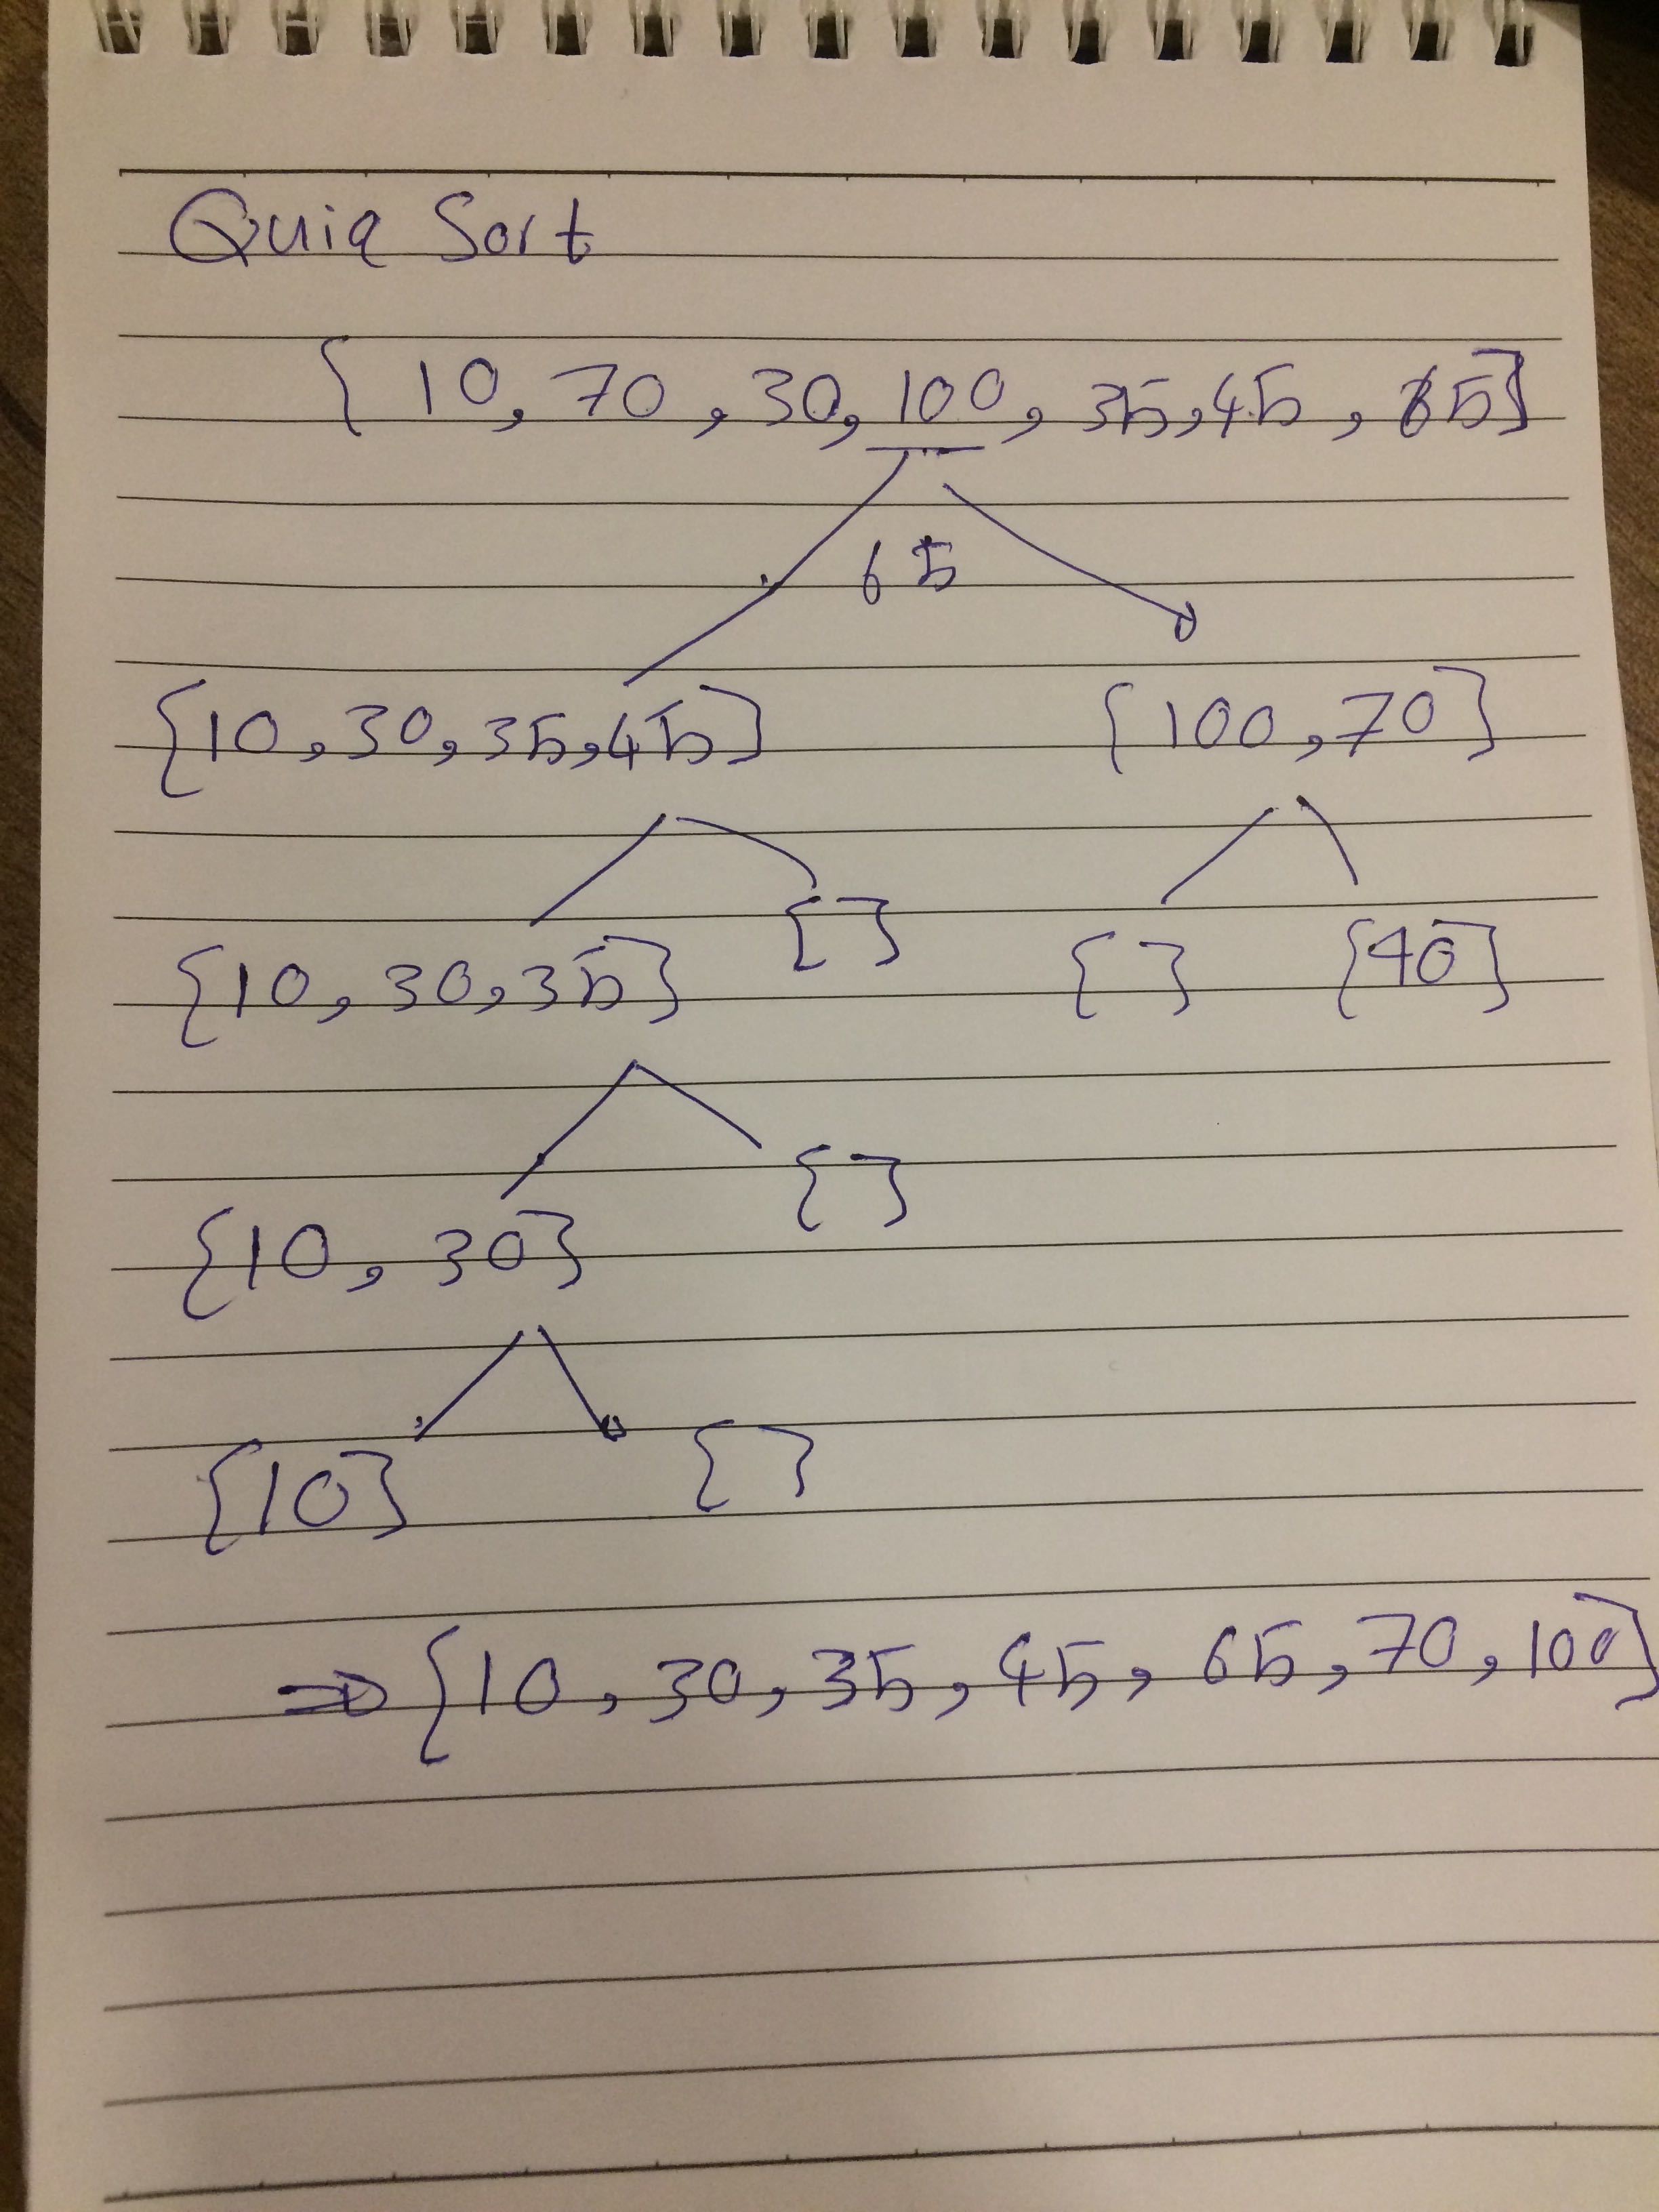 Quiq Sort
{ 10, 70, 30, 100, 35, 45, 65}
65
{10, 30, 35, 45} {100, 70}
{10, 30, 35} {} {} {40}
{10, 30} {}
{10} {}
⇒ {10, 30, 35, 45, 65, 70, 100}